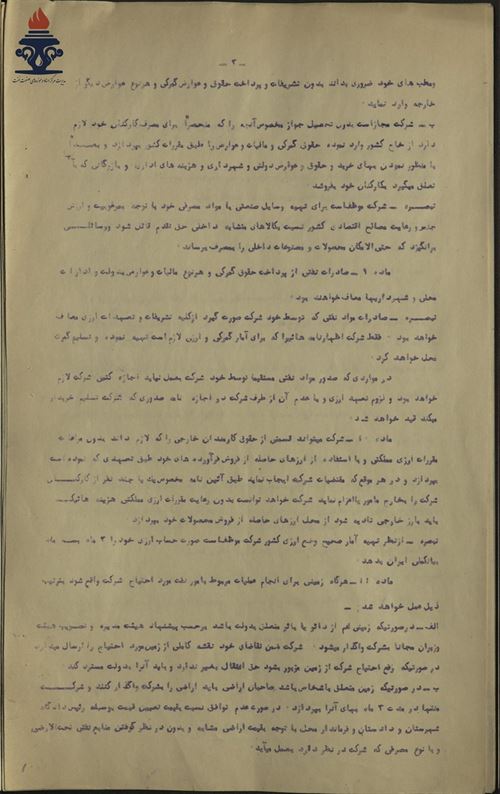 - ۳ -
ومطب های خود ضروری بداند بدون تشریفات و پرداخت حقوق و عوارض گمرکی و هرنوع عوارض دیگر از
خارجه وارد نماید.
ب - شرکت مجازاست بدون تحصیل جواز مخصوص آنچه را که منحصراً برای مصرف کارکنان خود لازم
دارد از خارج کشور وارد نموده حقوق گمرکی و مالیات و عوارض را طبق مقررات کشور بپردازد و بعداً
با منظور نمودن بهای خرید و حقوق و عوارض دولتی و شهرداری و هزینه های اداری و بازرگانی که بآن
تعلق میگیرد بکارکنان خود بفروشد.
تبصره - شرکت موظفاست برای تهیه وسایل صنعتی یا مواد مصرفی خود با توجه بمرغوبیت و ارزش
جنس و رعایت مصالح اقتصادی کشور نسبت بکالاهای مشابه داخلی حق تقدم قائل شود ووسائلی
برانگیزد که حتی الامکان محصولات و مصنوعات داخلی را بمصرف برساند.
ماده ۹ - صادرات نفتی از پرداخت حقوق گمرکی و هرنوع مالیات وعوارض بدولت و ادارات
محلی و شهرداریها معاف خواهند بود.
تبصره - صادرات مواد نفتی که توسط خود شرکت صورت گیرد ازکلیه تشریفات و تعهدات ارزی معاف
خواهد بود. فقط شرکت اظهارنامه هائیرا که برای آمار گمرکی و ارزی لازم است تهیه نموده و تسلیم گمرک
محل خواهد کرد.
در مواردی که صدور مواد نفتی مستقیما توسط خود شرکت بعمل نیاید اجازه کتبی شرکت لازم
خواهد بود و لزوم تعهد ارزی و یا عدم آن از طرف شرکت در اجازه نامه صدوری که شرکت تسلیم خریدار
میکند قید خواهد شد.
ماده ۱۰ - شرکت میتواند قسمتی از حقوق کارمندان خارجی را که لازم داند بدون مراعات
مقررات ارزی مملکتی و با استفاده از ارزهای حاصله از فروش فرآورده های خود طبق تعهدی که نموده است
بپردازد و در هر موقع که مقتضیات شرکت ایجاب نماید طبق آئین نامه مخصوص یک یا چند نفر از کارکنان
شرکت را بخارج مامور یا اعزام نماید شرکت خواهد توانست بدون رعایت مقررات ارزی مملکتی هزینه هائیکه
باید بارز خارجی تادیه شود از محل ارزهای حاصله از فروش محصولات خود بپردازد.
تبصره - ازنظر تهیه آمار صحیح وضع ارزی کشور شرکت موظفاست صورت حساب ارزی خود را ۳ ماه بسه ماه
ببانک ملی ایران بدهد.
ماده ۱۱ - هرگاه زمینی برای انجام عملیات مربوط بامور نفت مورد احتیاج شرکت واقع شود بترتیب
ذیل عمل خواهد شد: -
الف - درصورتیکه زمینی اعم از دائر یا بائر متعلق بدولت باشد برحسب پیشنهاد هیئت مدیره و تصویب هیئت
وزیران مجاناً بشرکت واگذار میشود. شرکت ضمن تقاضای خود نقشه کاملی از زمین مورد احتیاج را ارسال میدارد
در صورتیکه رفع احتیاج شرکت از زمین مزبور بشود حق انتقال بغیر ندارد و باید آنرا بدولت مسترد کند.
ب - در صورتیکه زمین متعلق باشخاص باشد صاحبان اراضی باید اراضی را بشرکت واگذار کنند و شرکت
منتها در مدت ۳ ماه بهای آنرا بپردازد. در صورت عدم توافق نسبت بقیمت تعیین قیمت بوسیله رئیس دادگاه
شهرستان و دادستان و فرماندار محل با توجه بقیمت اراضی مشابه و بدون در نظر گرفتن منابع نفتی تحت الارضی
و یا نوع مصرفی که شرکت در نظر دارد بعمل میآید.